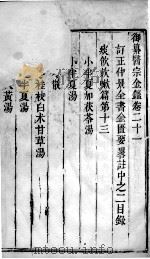 御纂醫宗金鑑卷二十一
訂正仲景全書金匱要畧註中之二目錄
痰飲欬嗽篇第十三
小半夏加茯苓湯
小半夏湯
散
桂枝白术甘草湯
半夏湯
黃湯